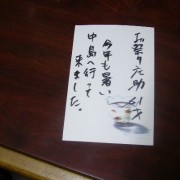 お祭り庄助 61才
今年も暑い
中島へ行って
来ました。